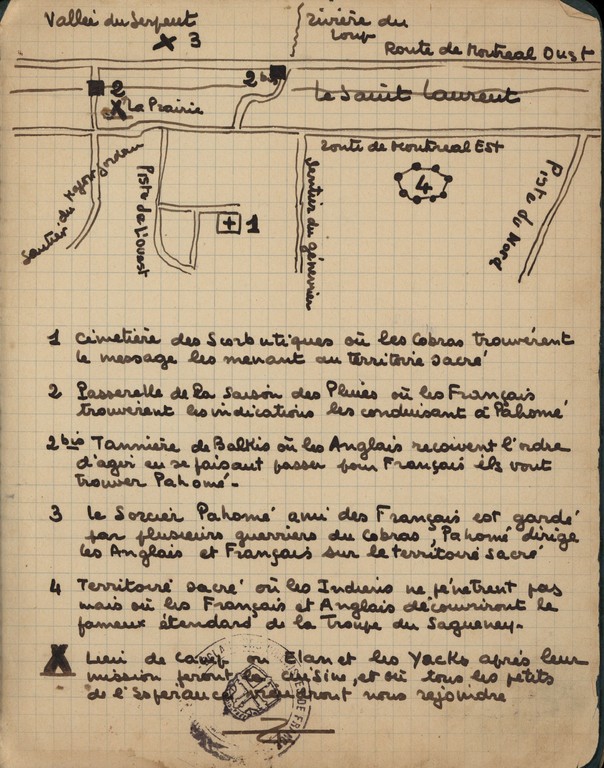 Vallée du Serpent
3
rivière du
Loup
Route de Montreal Ouest
2
2 bis
La Prairie
Le Saint Laurent
route de Montreal Est
Sentier du Major Jordan
Piste de l'ouest
1
sentier du génévrier
4
Piste du Nord
1 Cimetière des Scorbutiques où les Cobras trouvèrent
le message les menant au territoire sacré
2 Passerelle de la Saison des Pluies où les Français
trouvèrent les indications les conduisant à Pahomé
2 bis Tannière de Balkis où les Anglais reçoivent l'ordre
d'agir en se faisant passer pour Français ils vont
trouver Pahomé.-
3 Le Sorcier Pahomé ami des Français est gardé
par plusieurs guerriers du Cobras, Pahomé dirige
les Anglais et Français sur le territoire sacré
4 Territoire sacré où les Indiens ne pénètrent pas
mais où les Français et Anglais découvriront le
fameux étendard de la Troupe du Sagueney.-
X Lieu de camp où Elan et les Yacks après leur
mission feront la cuisine, et où tous les petits
de l'Espérance nous rejoindre
DE FRANCE